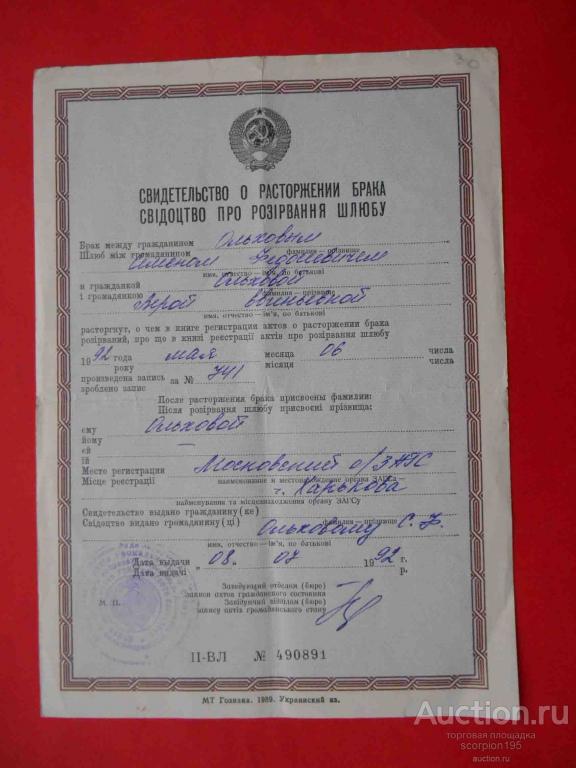 30
СВИДЕТЕЛЬСТВО О РАСТОРЖЕНИИ БРАКА
СВІДОЦТВО ПРО РОЗІРВАННЯ ШЛЮБУ
Брак между гражданином Ольховым
Шлюб між громадянином фамилия — прізвище
Семеном
имя, отчество — ім'я, по батькові
и гражданкой Ольховой
і громадянкою фамилия — прізвище
Верой
имя, отчество — ім'я, по батькові
расторгнут, о чем в книге регистрации актов о расторжении брака
розірваний, про що в книзі реєстрації актів про розірвання шлюбу
1992 года мая месяца 06 числа
року місяця числа
произведена запись за № 741
зроблено запис
После расторжения брака присвоены фамилии:
Після розірвання шлюбу присвоєні прізвища:
ему Ольховой
йому
ей
їй
Место регистрации Московский о/ЗАГС
Місце реєстрації наименование и местонахождение органа ЗАГСа —
г. Харькова
найменування та місцезнаходження органу ЗАГСу
Свидетельство выдано гражданину (ке)
Свідоцтво видано громадянину (ці) Ольховому С. Ф.
фамилия — прізвище
имя, отчество — ім'я, по батькові
Дата выдачи „ 08. 07 1992 г.
Дата видачі р.
Заведующий отделом (бюро)
записи актов гражданского состояния
Завідуючий відділом (бюро)
запису актів громадянського стану
М. П.
II-ВЛ № 490891
МТ Гознака. 1989. Украинский яз.
Auction.ru
торговая площадка
scorpion195
auction.ru